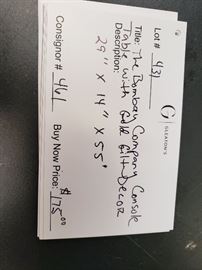 Lot # 431
G
GLEATON'S
Title: The Bombay Company Console
Table with Gold Gilt Decor
Description:
29" X 14" X 55"
Consignor # 461
Buy Now Price: $175.00